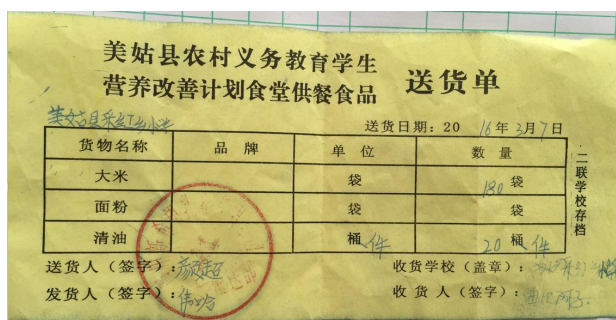 美姑县农村义务教育学生
营养改善计划食堂供餐食品 送货单
美姑县 乡小学
送货日期：2016年3月7日
货物名称 品牌 单位 数量
大米 袋 180 袋
面粉 袋 袋
清油 桶 件 20 桶 件
送货人（签字）： 超
收货学校（盖章）：
发货人（签字）：
收货人（签字）：
二联学校存档